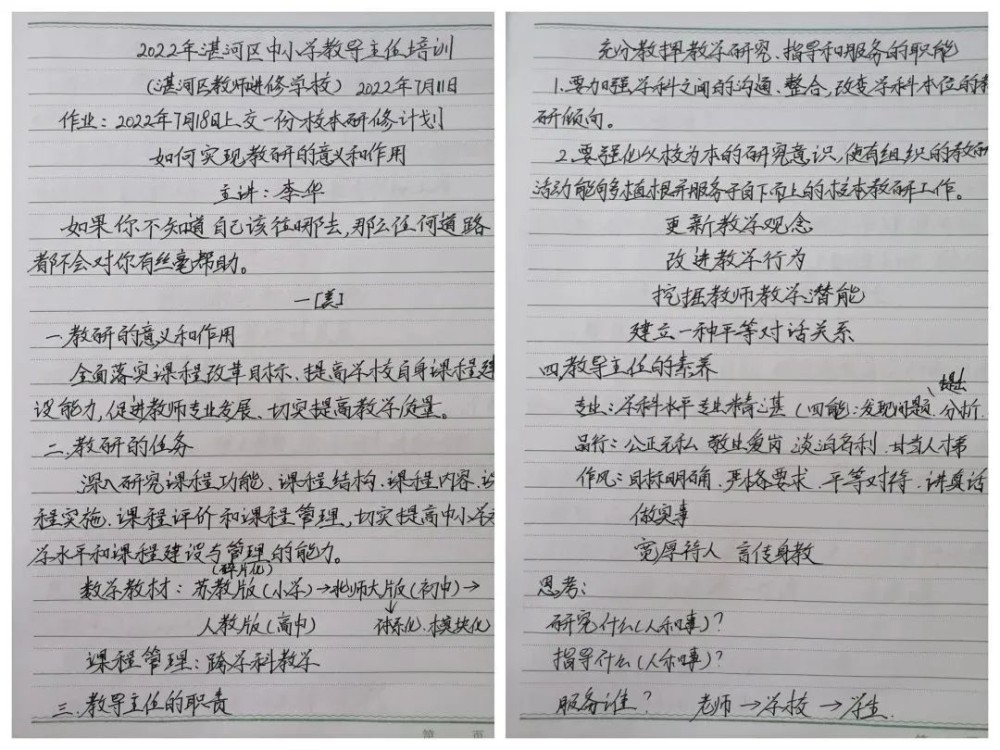 2022年湛河区中小学教导主任培训
（湛河区教师进修学校）2022年7月11日
作业：2022年7月18日上交一份校本研修计划
如何实现教研的意义和作用
主讲：李华
如果你不知道自己该往哪去，那么任何道路
都不会对你有丝毫帮助。
一[美]
一.教研的意义和作用
全面落实课程改革目标、提高学校自身课程建
设能力，促进教师专业发展、切实提高教学质量。
二.教研的任务
深入研究课程功能、课程结构.课程内容.课
程实施.课程评价和课程管理，切实提高中小学
学水平和课程建设与管理的能力。
（碎片化）
数学教材：苏教版（小学）→北师大版（初中）→
人教版（高中） 体系化.模块化
课程管理：跨学科教学
三.教导主任的职责
充分教挥教学研究、指导和服务的职能
1.要加强学科之间的沟通、整合，改变学科本位的教
研倾向。
2.要强化以校为本的研究意识，使有组织的教研
活动能够植根并服务于自下而上的校本教研工作。
更新教学观念
改进教学行为
挖掘教师教学潜能
建立一种平等对话关系
四.教导主任的素养
提出
专业：学科水平 专业精湛（四能：发现问题、分析
品行：公正无私 敬业爱岗 淡泊名利 .甘当人梯
作风：目标明确 .严格要求 .平等对待 .讲真话
做实事
宽厚待人 言传身教
思考：
研究什么（人和事）？
指导什么（人和事）？
服务谁？ 老师→学校→学生.